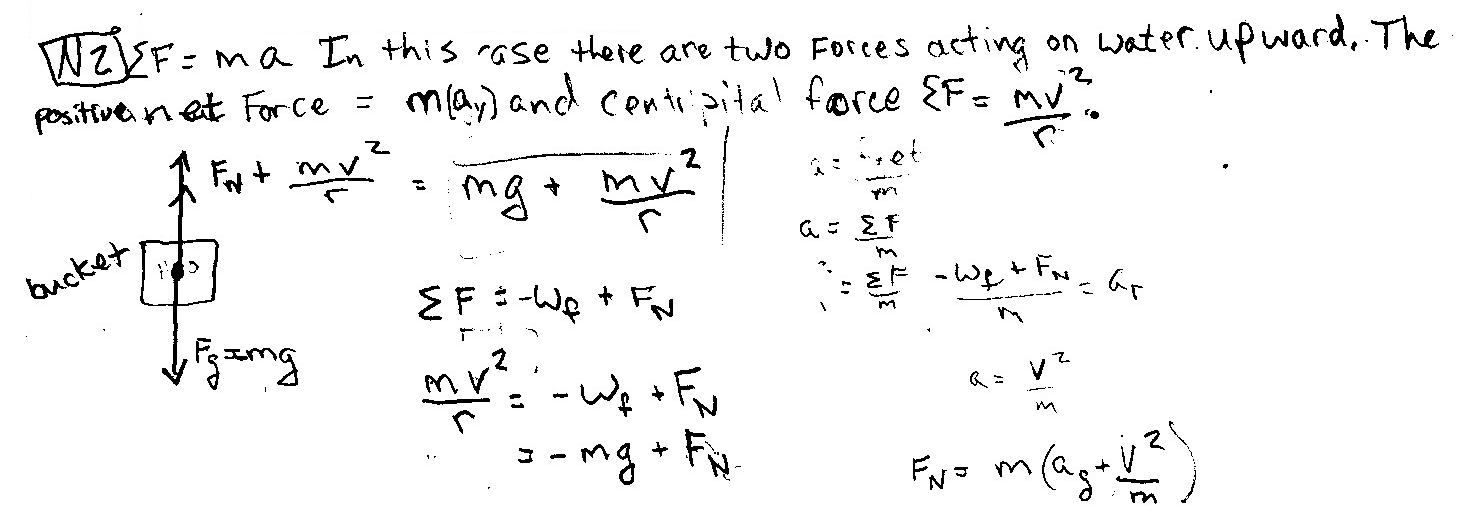 N2 ΣF = ma In this case there are two Forces acting on water upward. The
positive net Force = m(ay) and centripital force ΣF = mv²/r.
F_N + mv²/r = mg + mv²/r
bucket
F_g = mg
ΣF = -W_f + F_N
mv²/r = -W_f + F_N
= -mg + F_N
m
a = ΣF/m
= ΣF/m -W_f + F_N/m = a_r
a = v²/m
F_N = m(a_g + v²/m)